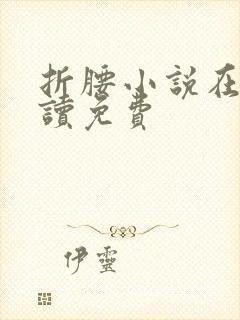 折腰小説在
讀免費
伊靈